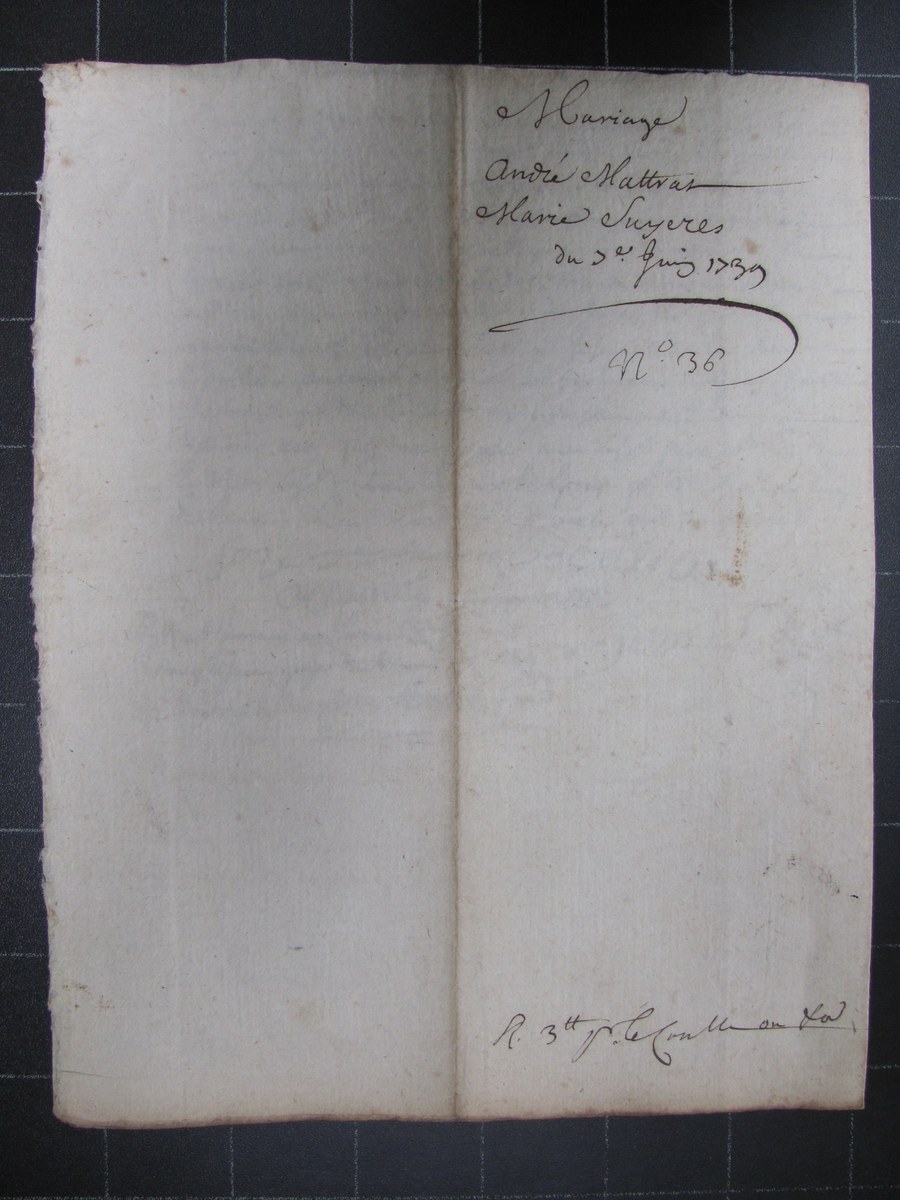 Mariage
André Mattras
Marie Suyeres
du 7e. Juin 1739
N° 36
R. 3tt pr. le Conlle